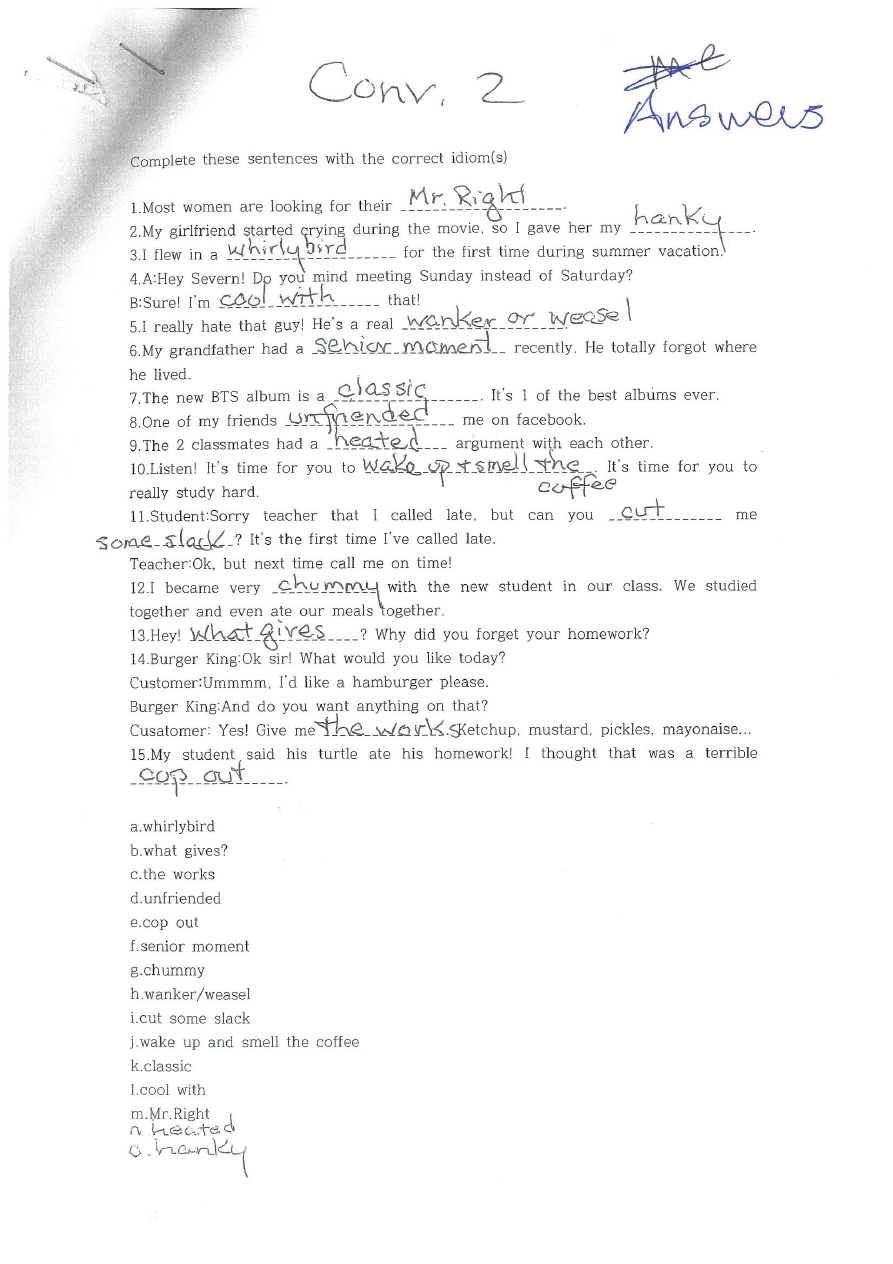 Conv. 2
me
Answers
Complete these sentences with the correct idiom(s)
1.Most women are looking for their Mr. Right.
2.My girlfriend started crying during the movie, so I gave her my hanky.
3.I flew in a whirlybird for the first time during summer vacation.
4.A:Hey Severn! Do you mind meeting Sunday instead of Saturday?
B:Sure! I'm cool with that!
5.I really hate that guy! He's a real wanker or weasel
6.My grandfather had a senior moment recently. He totally forgot where
he lived.
7.The new BTS album is a classic. It's 1 of the best albums ever.
8.One of my friends unfriended me on facebook.
9.The 2 classmates had a heated argument with each other.
10.Listen! It's time for you to wake up + smell the. It's time for you to
coffee
really study hard.
11.Student:Sorry teacher that I called late, but can you cut me
some slack? It's the first time I've called late.
Teacher:Ok, but next time call me on time!
12.I became very chummy with the new student in our class. We studied
together and even ate our meals together.
13.Hey! What gives? Why did you forget your homework?
14.Burger King:Ok sir! What would you like today?
Customer:Ummmm, I'd like a hamburger please.
Burger King:And do you want anything on that?
Cusatomer: Yes! Give me the works. Ketchup, mustard, pickles, mayonaise...
15.My student said his turtle ate his homework! I thought that was a terrible
cop out.
a.whirlybird
b.what gives?
c.the works
d.unfriended
e.cop out
f.senior moment
g.chummy
h.wanker/weasel
i.cut some slack
j.wake up and smell the coffee
k.classic
l.cool with
m.Mr.Right
n.heated
o.hanky